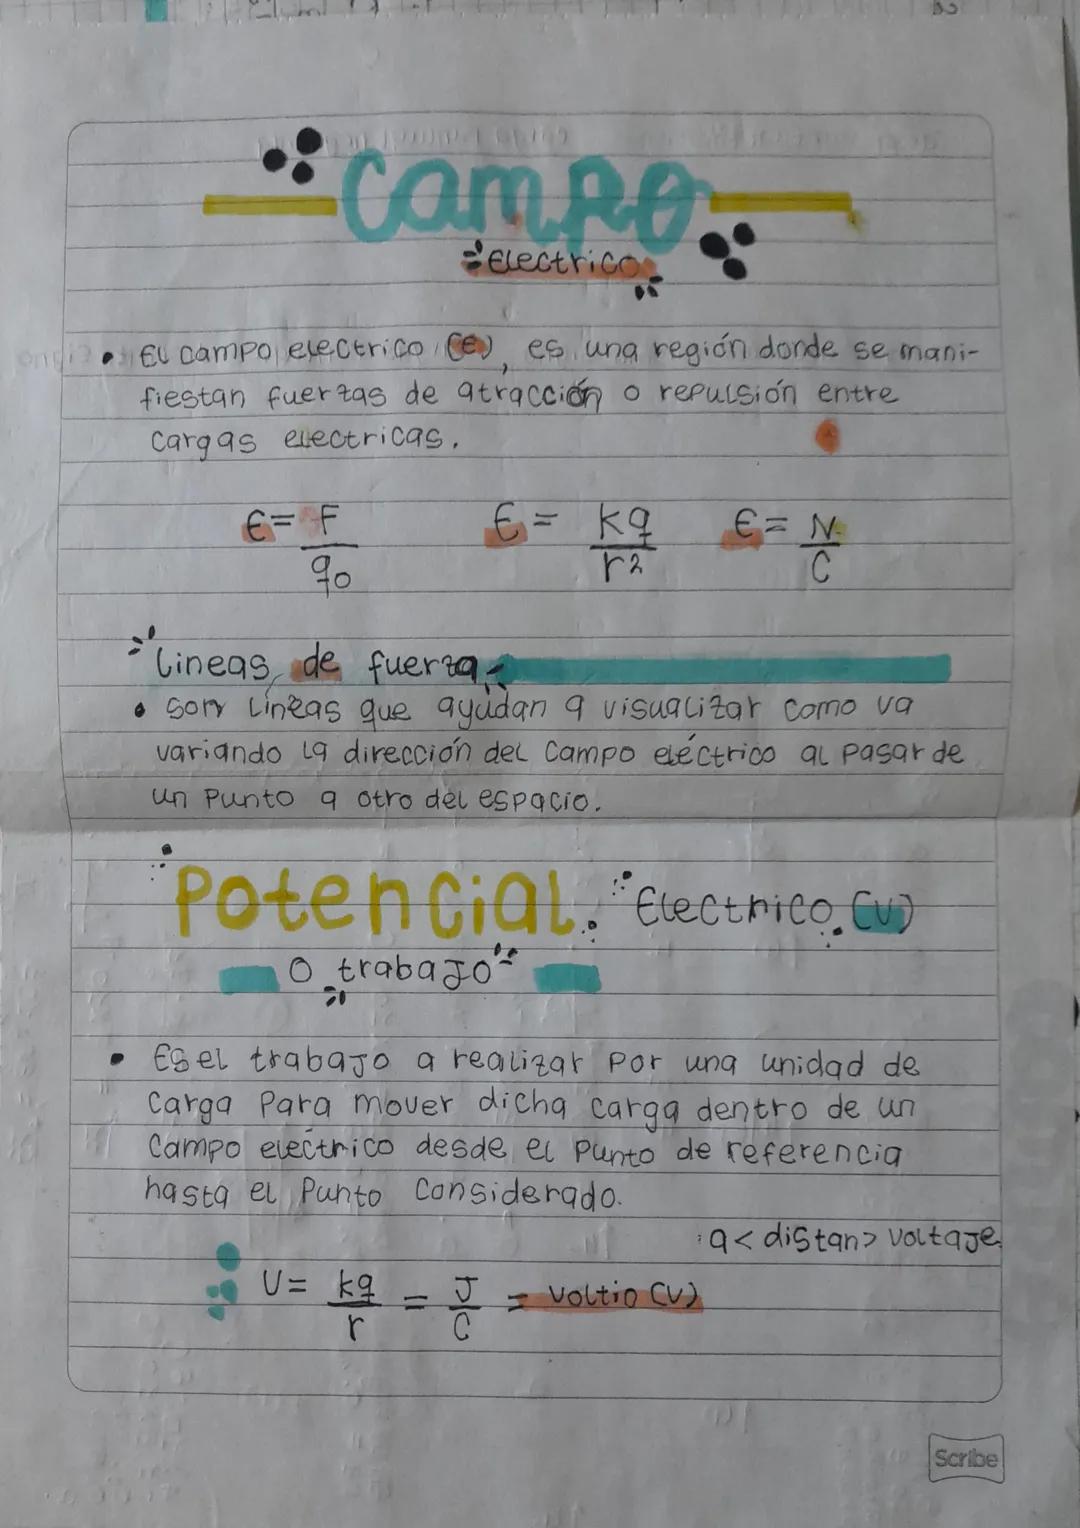 Campo
Electrico
• El campo electrico (E), es una región donde se mani-
fiestan fuerzas de atracción o repulsión entre
cargas electricas.
E = F/q0 E = kq/r² E = N/C
Lineas de fuerza
• Son líneas que ayudan a visualizar como va
variando la dirección del campo eléctrico al pasar de
un punto a otro del espacio.
Potencial Electrico (V)
O trabajo
• Es el trabajo a realizar por una unidad de
carga para mover dicha carga dentro de un
campo electrico desde el punto de referencia
hasta el punto considerado.
: a < distan > voltaje
V = kq/r = J/C = voltio (V)
Scribe